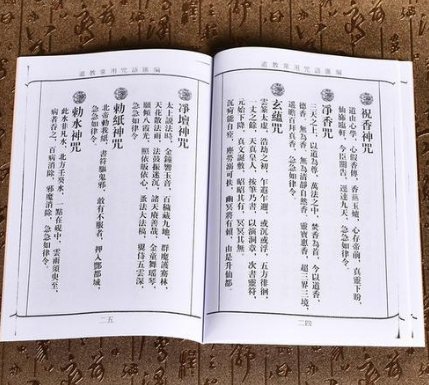 道教常用咒語匯編
祝香神咒
道由心學，心假香傳，香爇玉爐，心存帝前，真靈下盼，
仙旆臨軒，今臣關告，逕達九天，急急如律令。
淨香咒
三天之上，以道為尊，萬法之中，焚香為首，今以道香，
德香，無為香，無為清靜自然香，靈寶惠香，超三界三境，
遙瞻百拜真香，急急如律令。
玄蘊咒
雲篆太虛，浩劫之初，乍遐乍邇，或沉或浮，五方徘徊，
一丈之餘，天真皇人，按筆乃書，以演洞章，次書靈符，
元始下降，真文誕敷，昭昭其有，冥冥其無，
沉疴能自痊，塵勞溺可扶，幽冥將有賴，由是升仙都。
二四
道教常用咒語匯編
淨壇神咒
太上說法時，金鐘響玉音，百穢藏九地，群魔護騫林，
天花散法雨，法鼓振迷沉，諸天賡善哉，金童舞瑤琴，
願傾八霞光，照依皈依心，蚤法大法稿，翼侍五雲深，
急急如律令
勅紙神咒
北帝勅我紙，書符驅鬼邪，敢有不服者，押入酆都城，
急急如律令。
勅水神咒
此水非凡水，北方壬癸水，一點在硯中，雲雨須臾至，
病者吞之，百病消除，邪魔消除，急急如律令。
二五